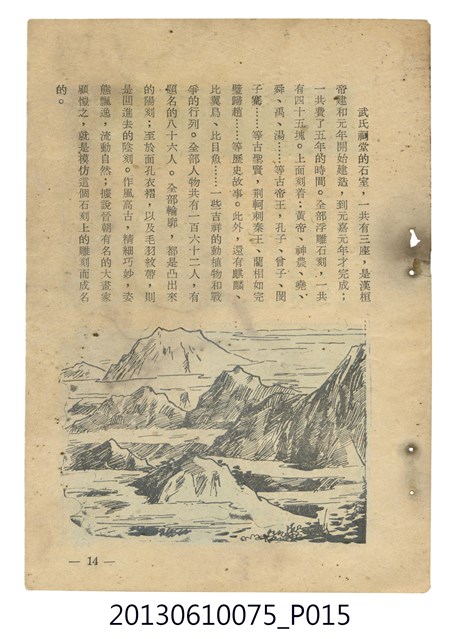 武氏祠堂的石室，一共有三座，是漢桓
帝建和元年開始建造，到元嘉元年才完成；
一共費了五年的時間。全部浮雕石刻，一共
有四十五塊。上面刻着：黃帝、神農、堯、
舜、禹、湯……等古帝王，孔子、曾子、閔
子騫……等古聖賢，荆軻刺秦王、藺相如完
璧歸趙……等歷史故事。此外，還有麒麟、
比翼鳥、比目魚……一些吉祥的動植物和戰
爭的行列。全部人物共有一百六十二人，有
題名的八十六人。全部輪廓，都是凸出來
的陽刻；至於面孔衣褶，以及毛羽紋帶，則
是凹進去的陰刻。作風高古，精細巧妙，姿
態飄逸，流動自然；據說晉朝有名的大畫家
顧愷之，就是模仿這個石刻上的雕刻而成名
的。
— 14 —
20130610075_P015